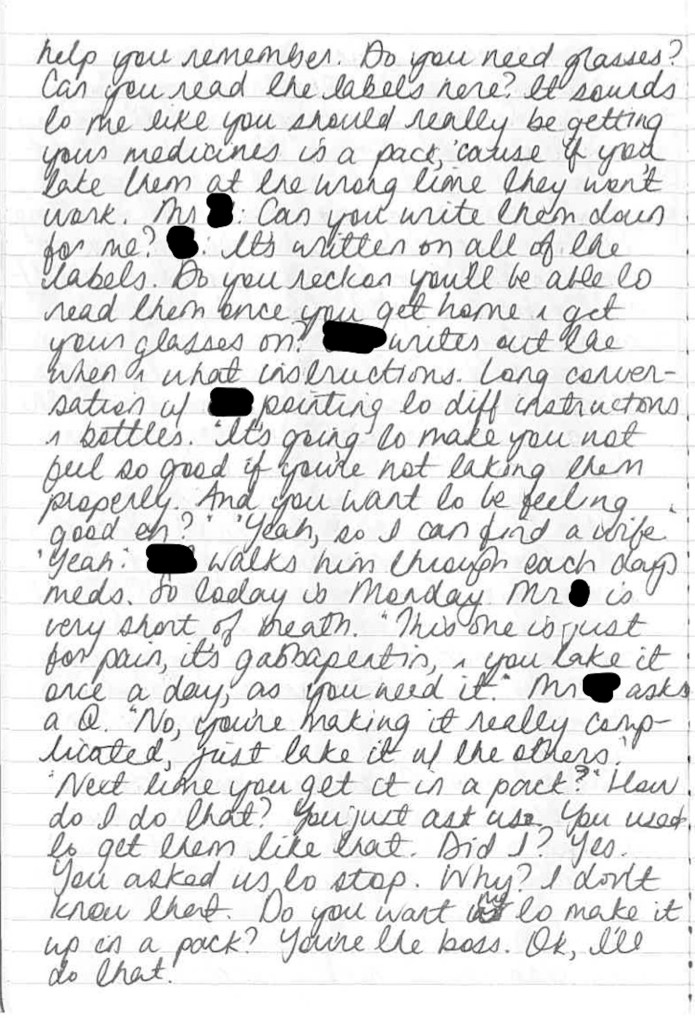 help you remember. Do you need glasses?
Can you read the labels here? It sounds
to me like you should really be getting
your medicines in a pack, 'cause if you
take them at the wrong time they won't
work. Mr : Can you write them down
for me? : It's written on all of the
labels. Do you reckon you'll be able to
read them once you get home & get
your glasses on? writes out the
when & what instructions. Long conver-
sation w/ pointing to diff instructons
& bottles. "It's going to make you not
feel so good if you're not taking them
properly. And you want to be feeling
good eh?" "Yeah, so I can find a wife.
"Yeah". walks him through each days
meds. So today is Monday. Mr is
very short of breath. "This one is just
for pain, it's gabbapentin, & you take it
once a day, as you need it." Mr asks
a Q. "No, you're making it really comp-
licated, just take it w/ the others."
"Next time you get it in a pack?" How
do I do that? You just ask us. You used
to get them like that. Did I? Yes.
You asked us to stop. Why? I don't
know that. Do you want to make it
up in a pack? You're the boss. Ok, I'll
do that.